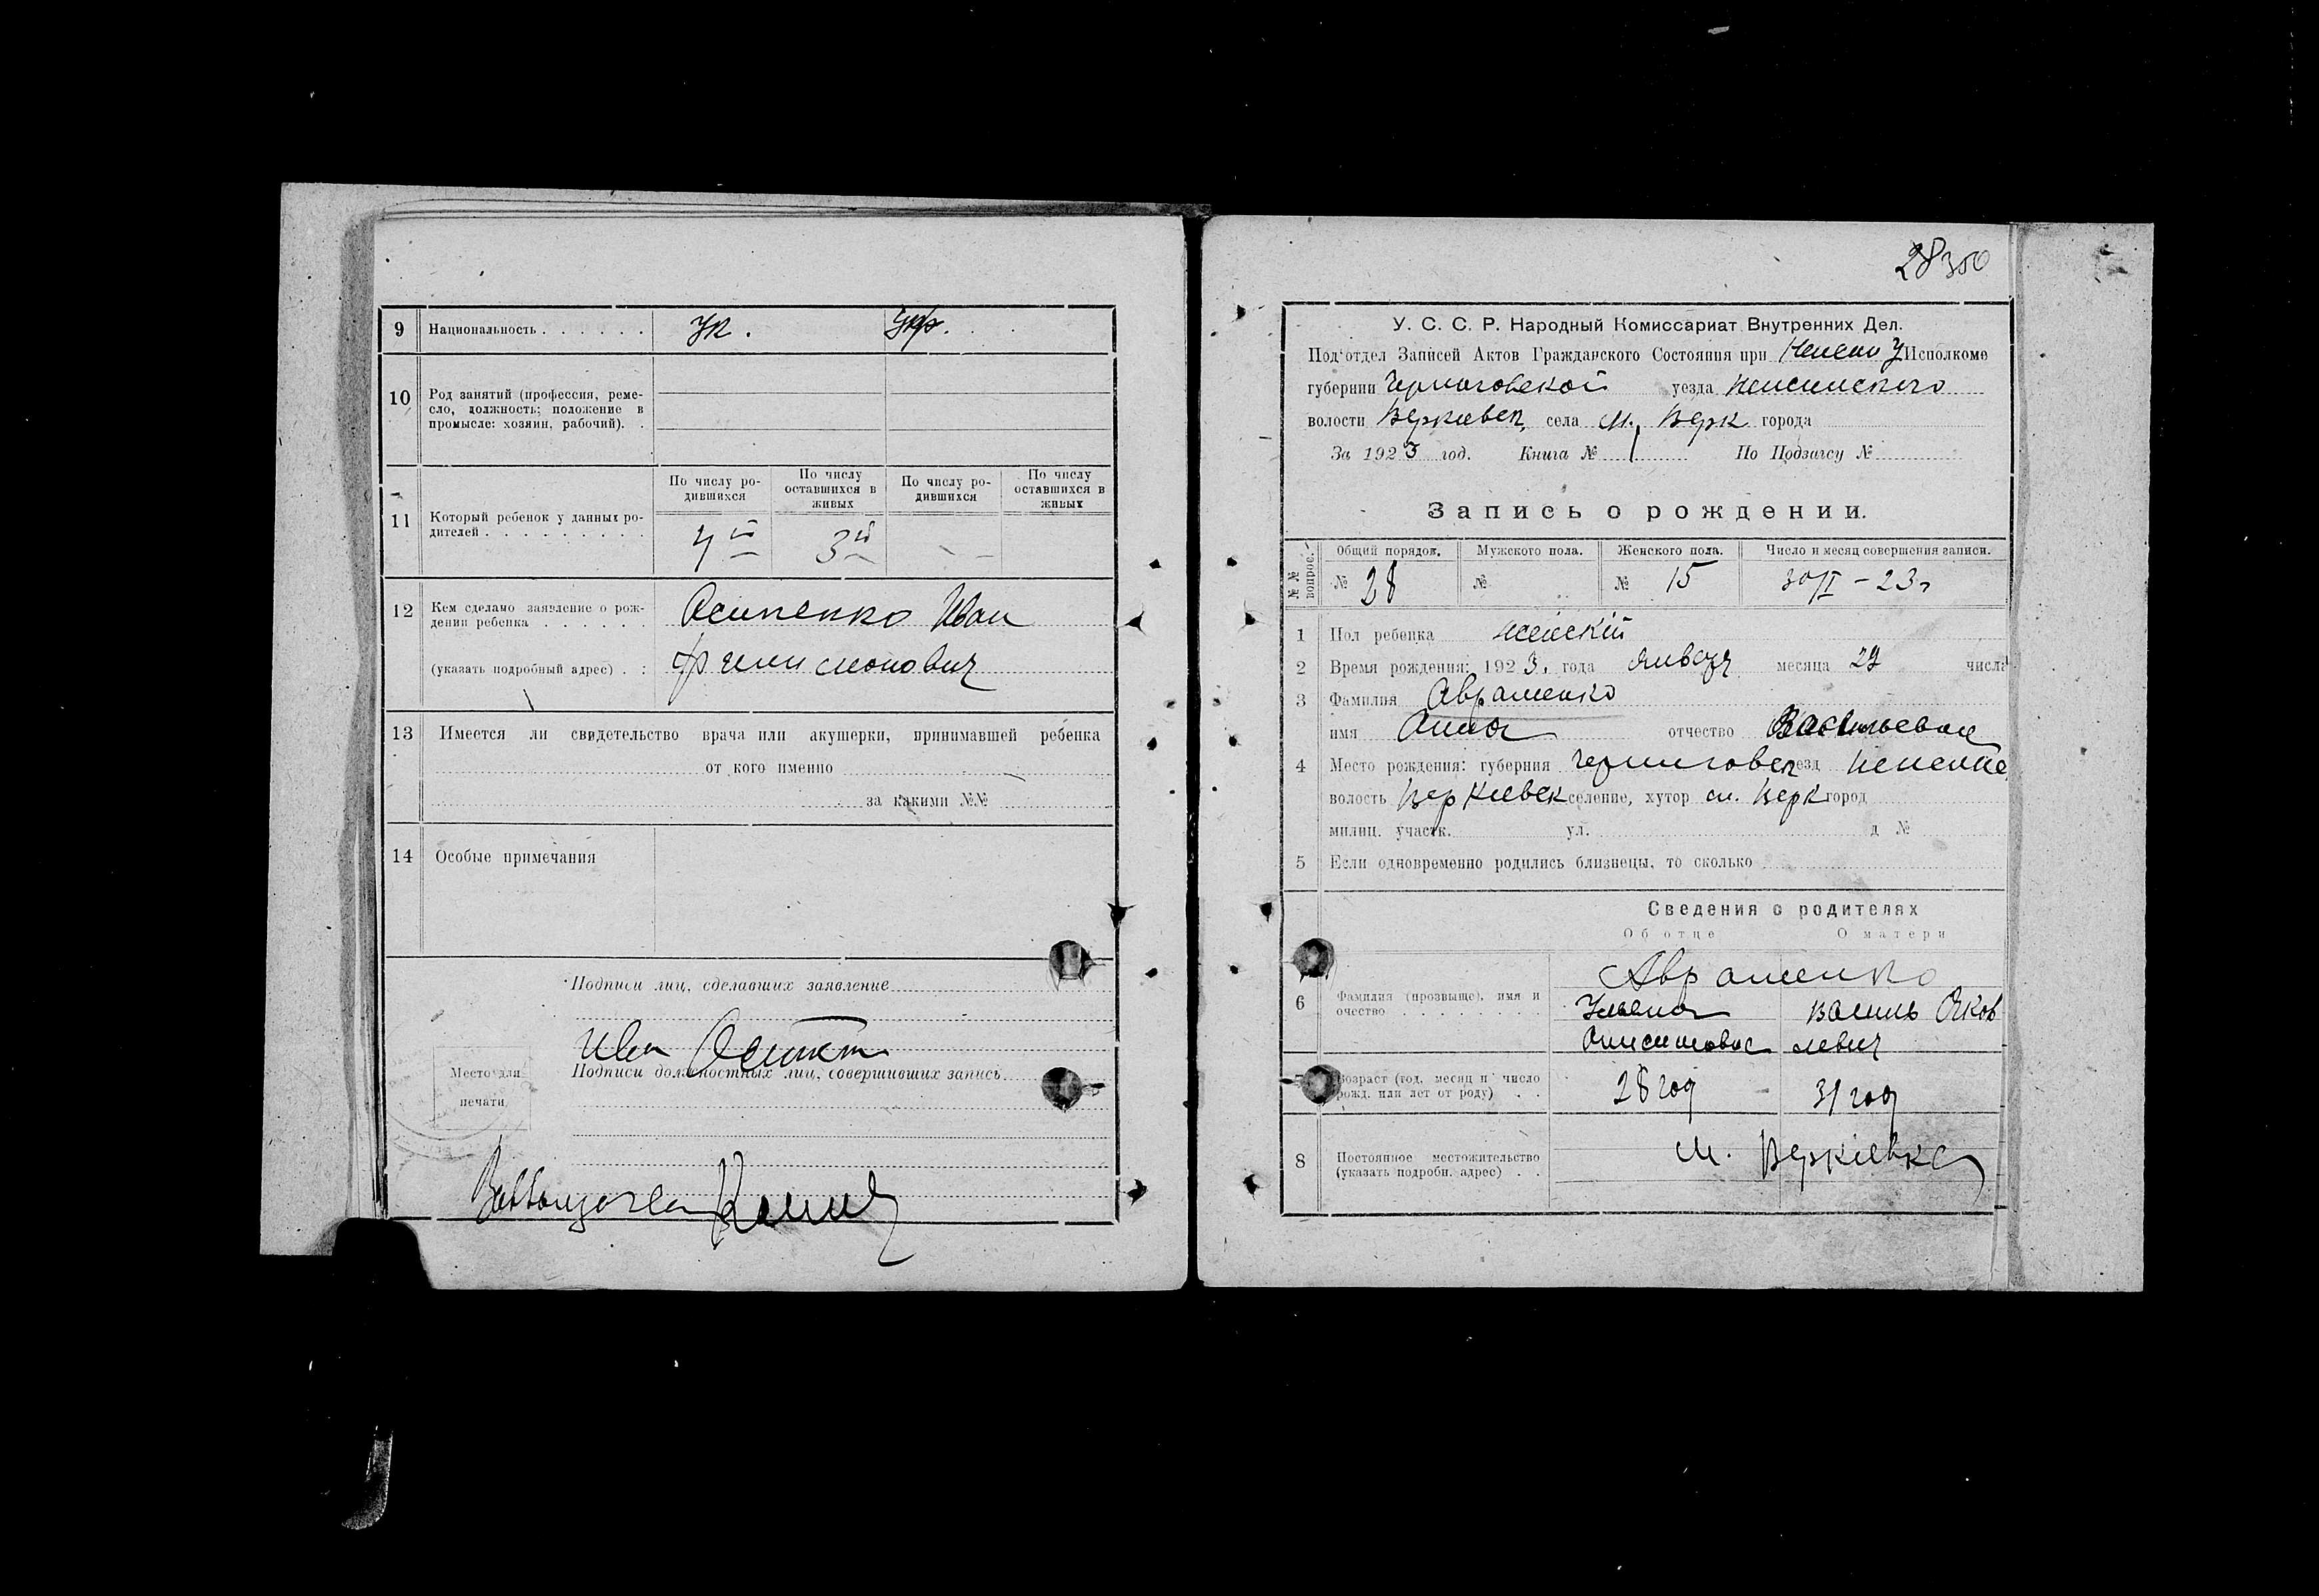 9 Национальность . . . . . . Ук. Укр.
10 Род занятий (профессия, реме-
сло, должность; положение в
промысле: хозяин, рабочий). .
По числу ро-
дившихся
По числу
оставшихся в
живых
По числу ро-
дившихся
По числу
оставшихся в
живых
11 Который ребенок у данных ро-
дителей . . . . . . . . . 4й 3й — —
12 Кем сделано заявление о рож-
дении ребенка . . . . . . Осипенко Иван
(указать подробный адрес) . : Филимонович
13 Имеется ли свидетельство врача или акушерки, принимавшей ребенка
от кого именно
за какими №№
14 Особые примечания
Подписи лиц, сделавших заявление
Иван
Подписи должностных лиц, совершивших запись
Место для
печати
28 300
У. С. С. Р. Народный Комиссариат Внутренних Дел.
Под'отдел Записей Актов Гражданского Состояния при Нежин У Исполкоме
губернии Черниговской уезда Неженского
волости Веркиевск, села м. Верк города
За 1923 год. Книга № 1 По Подзагсу №
Запись о рождении.
№№ вопрос.
Общий порядок. Мужского пола. Женского пола. Число и месяц совершения записи.
№ 28 № № 15 30/I – 23г
1 Пол ребенка женский
2 Время рождения: 1923. года январ месяца 29 числа
3 Фамилия Авраменко
имя Анна отчество Васильевна
4 Место рождения: губерния Черниговск уезд Неженс
волость Веркиевск селение, хутор м. Верк город
милиц. участк. ул. д №
5 Если одновременно родились близнецы, то сколько
Сведения о родителях
Об отце О матери
Авраменко
6 Фамилия (прозвище), имя и
очество . . . . . . . . Ульяна Василь Яков
Анисимовна левич
Возраст (год, месяц и число
рожд. или лет от роду) . . 28 год 31 год
8 Постоянное местожительство
(указать подробн. адрес) . . м. Веркіевка